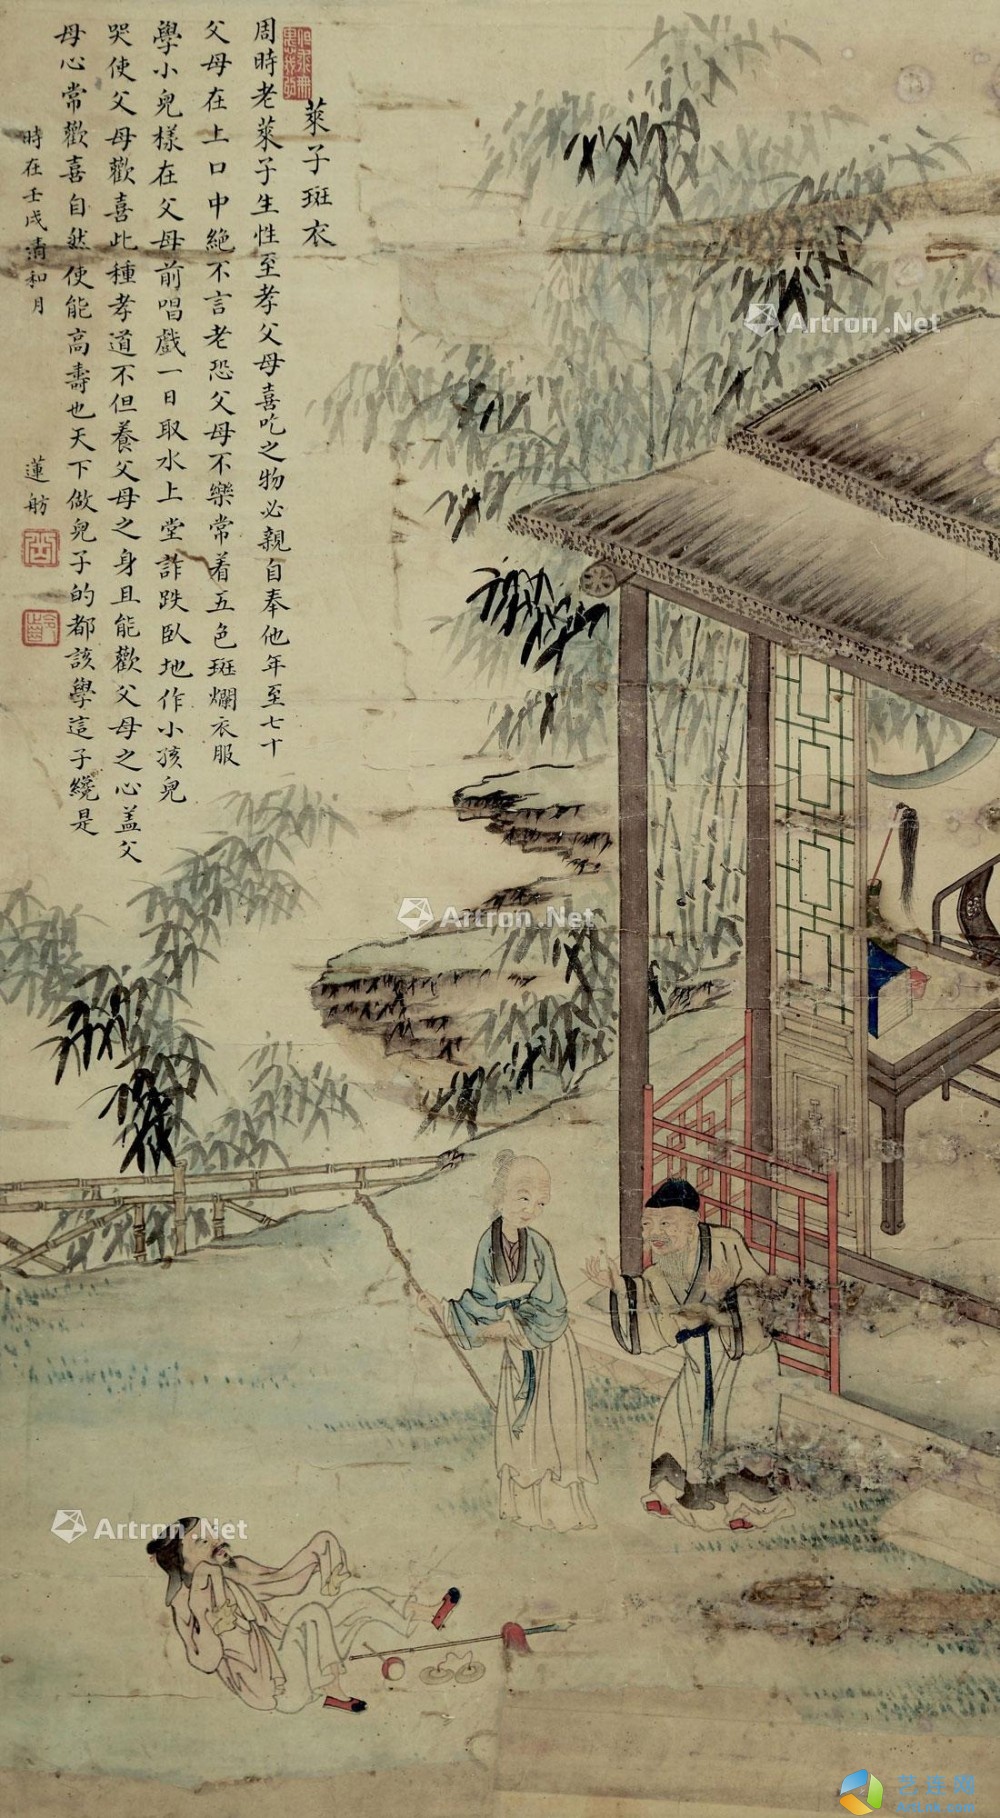 萊子斑衣
周時老萊子生性至孝父母喜吃之物必親自奉他年至七十
父母在上口中絶不言老恐父母不樂常着五色斑斕衣服
學小兒樣在父母前唱戲一日取水上堂詐跌臥地作小孩兒
哭使父母歡喜此種孝道不但養父母之身且能歡父母之心蓋父
母心常歡喜自然使能高壽也天下做兒子的都該學這子纔是
時在壬戌清和月
蓮舫
Artron.Net
Artron.Net
Artron.Net